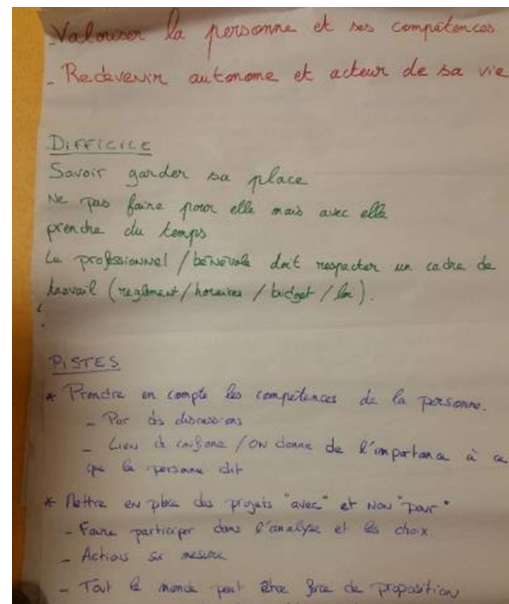 - Valoriser la personne et ses compétences
- Redevenir autonome et acteur de sa vie
DIFFICILE
Savoir garder sa place
Ne pas faire pour elle mais avec elle
prendre du temps
Le professionnel / bénévole doit respecter un cadre de
travail (reglement / horaires / budget / loi).
PISTES
* Prendre en compte les compétences de la personne.
- Par des discussions
- Lien de confiance / ON donne de l'importance à ce
que la personne dit
* Mettre en place des projets "avec" et NON "pour"
- Faire participer dans l'analyse et les choix
- Actions sur mesure
- Tout le monde peut être force de proposition